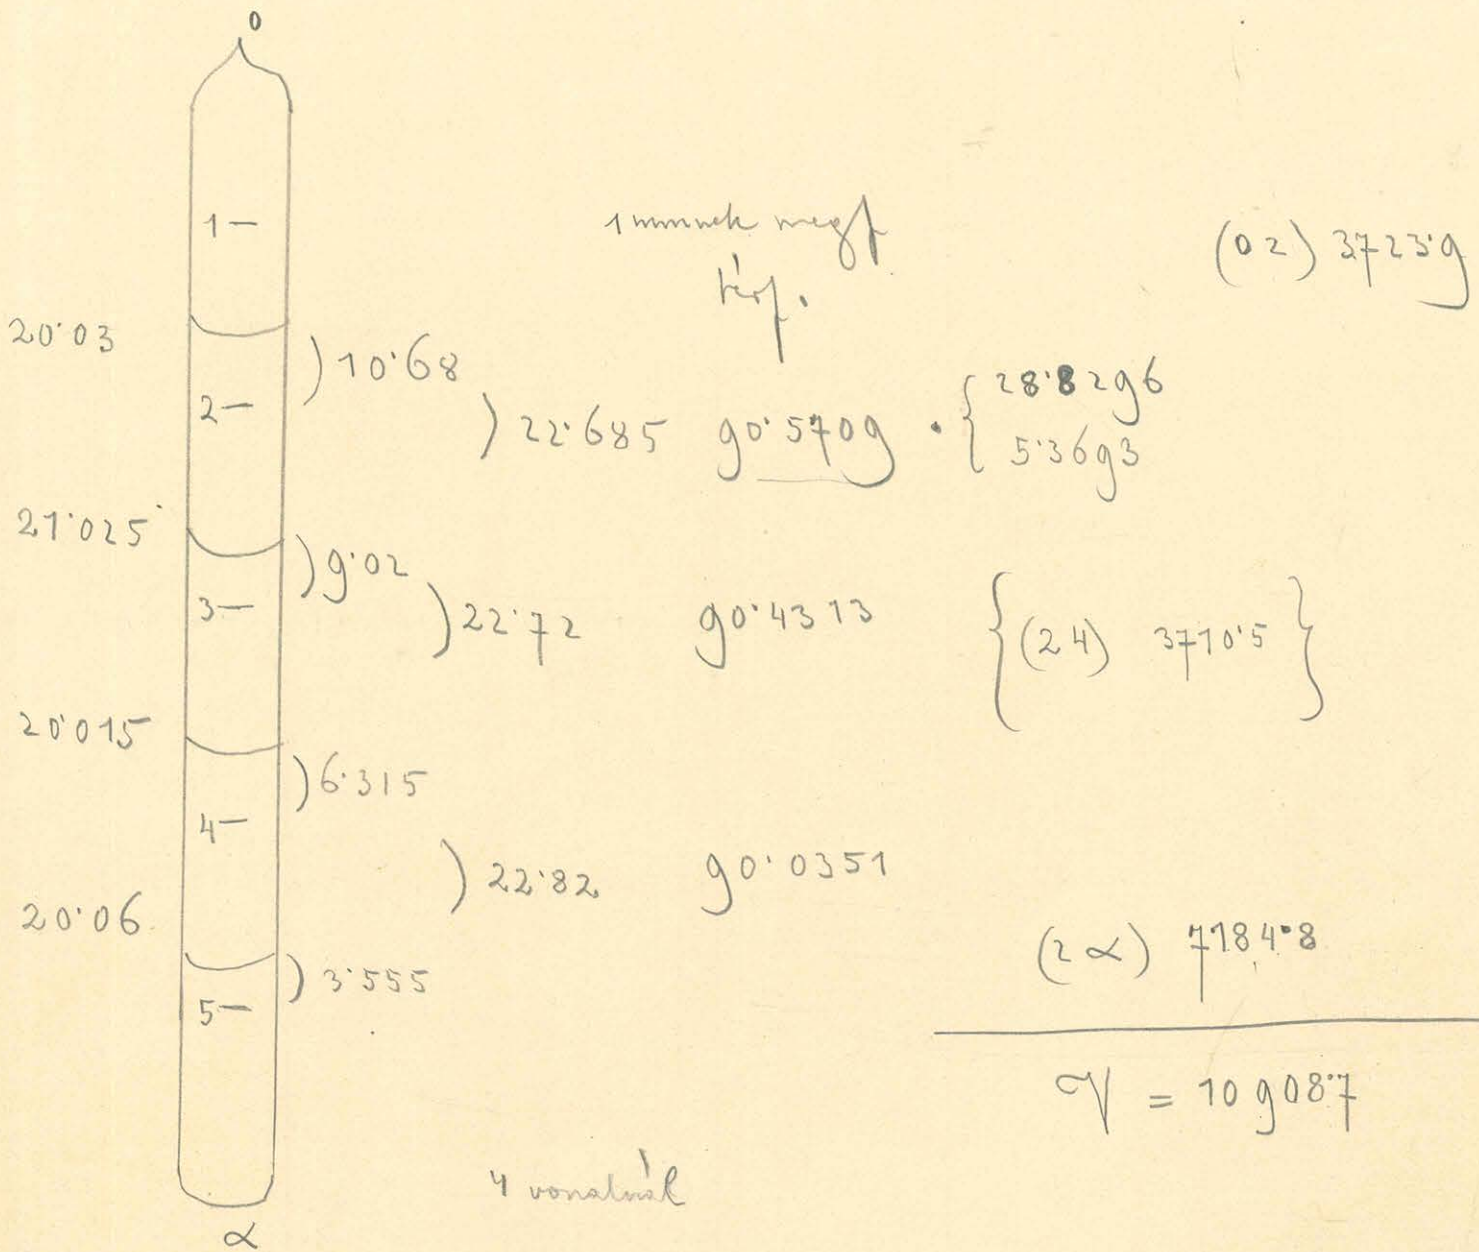 0
1—
1 mmnek megf
térf.
(02) 3723·9
20·03
) 10·68
2—
) 22·685 90·5709 · { 28·8296
5·3693
21·025
) 9·02
3—
) 22·72 90·4313 { (24) 3710·5 }
20·015
) 6·315
4—
) 22·82 90·0351
20·06
(2α) 7184·8
) 3·555
5—
V = 10908·7
4 vonalnál
α